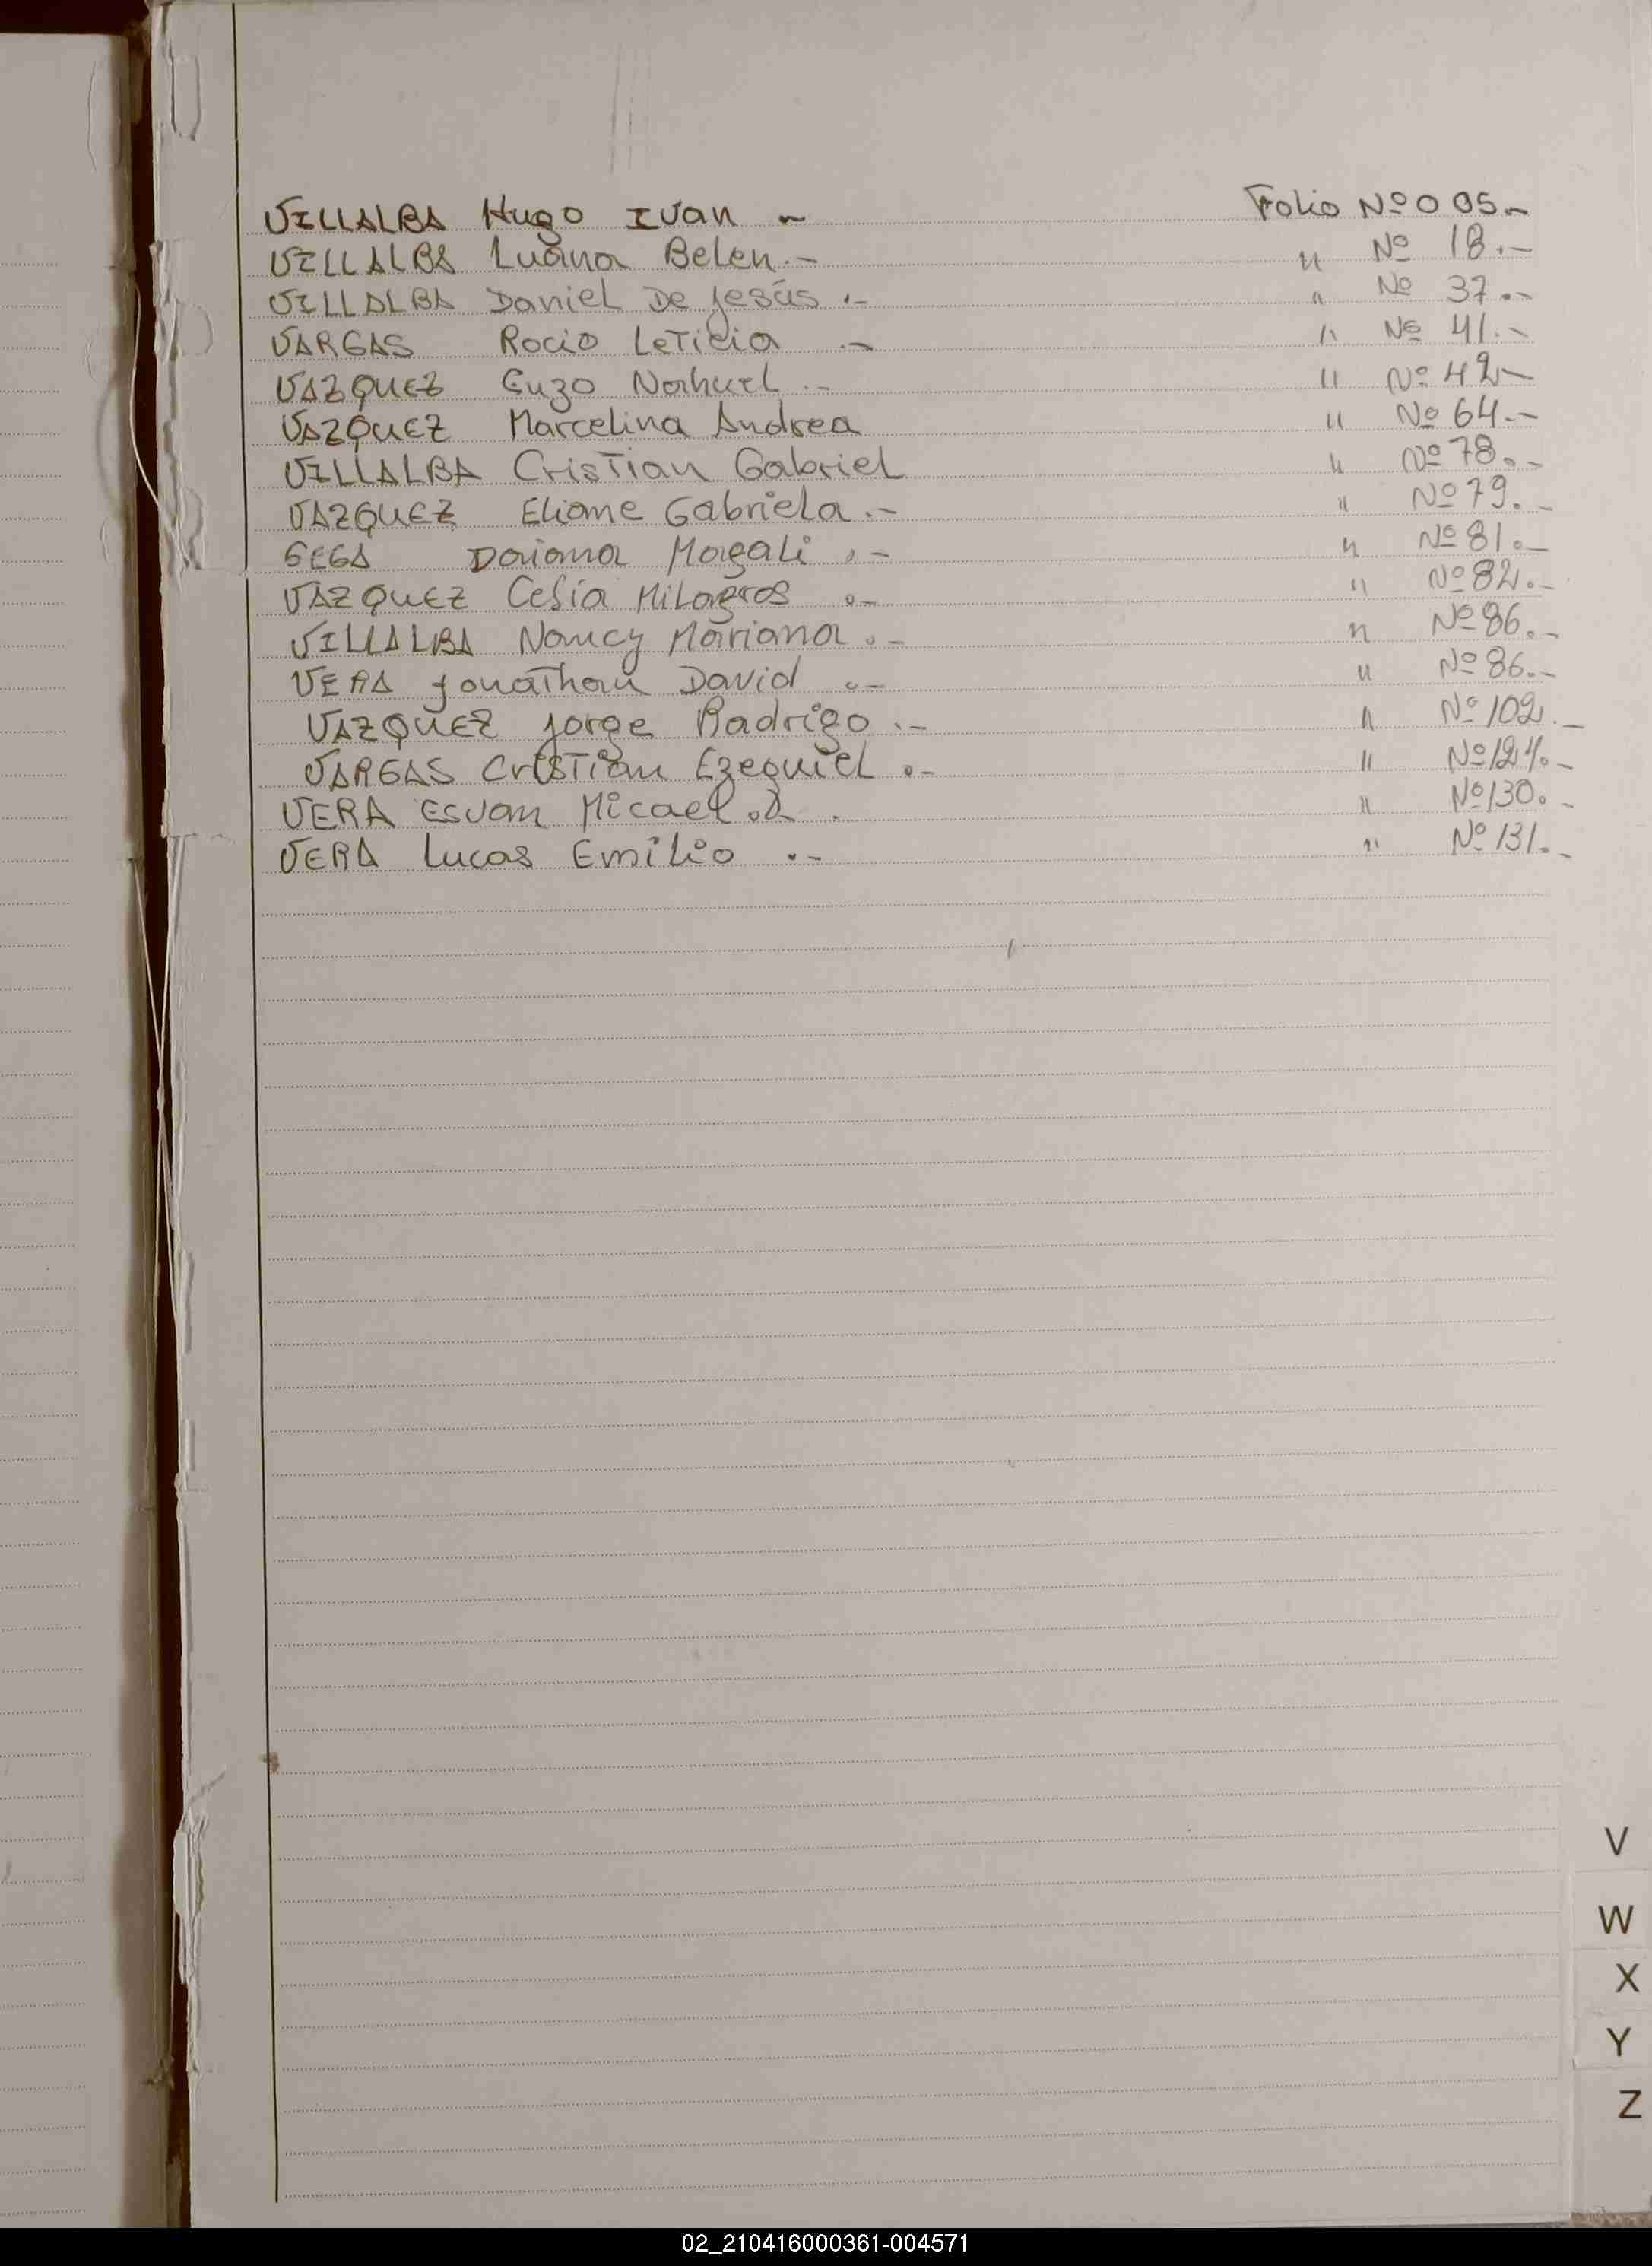 VILLALBA Hugo IVan - Folio Nº 005.-
VILLALBA Luana Belen.- " Nº 18.-
VILLALBA Daniel De Jesús .- " Nº 37.-
VARGAS Rocio Leticia .- " Nº 41.-
VAZQUEZ Enzo Nahuel .- " Nº 42-
VAZQUEZ Marcelina Andrea " Nº 64.-
VILLALBA Cristian Gabriel " Nº 78.-
VAZQUEZ Eliane Gabriela.- " Nº 79.-
Daiana Magali .- " Nº 81.-
VAZQUEZ Celia Milagros .- " Nº 82.-
VILLALBA Nancy Mariana.- " Nº 86.-
VERA Jonathan David .- " Nº 86.-
VAZQUEZ Jorge Rodrigo .- " Nº 102.-
VARGAS Cristian Ezequiel .- " Nº 124.-
VERA Esvan Micael " Nº 130.-
VERA Lucas Emilio .- " Nº 131.-
V
W
X
Y
Z
02_210416000361-004571